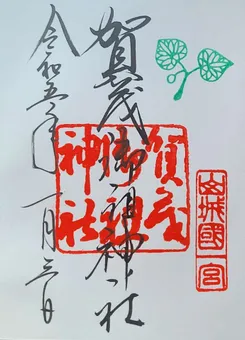 山城國一宮
賀茂御祖神社
賀茂御祖神社
令和五年一月三日